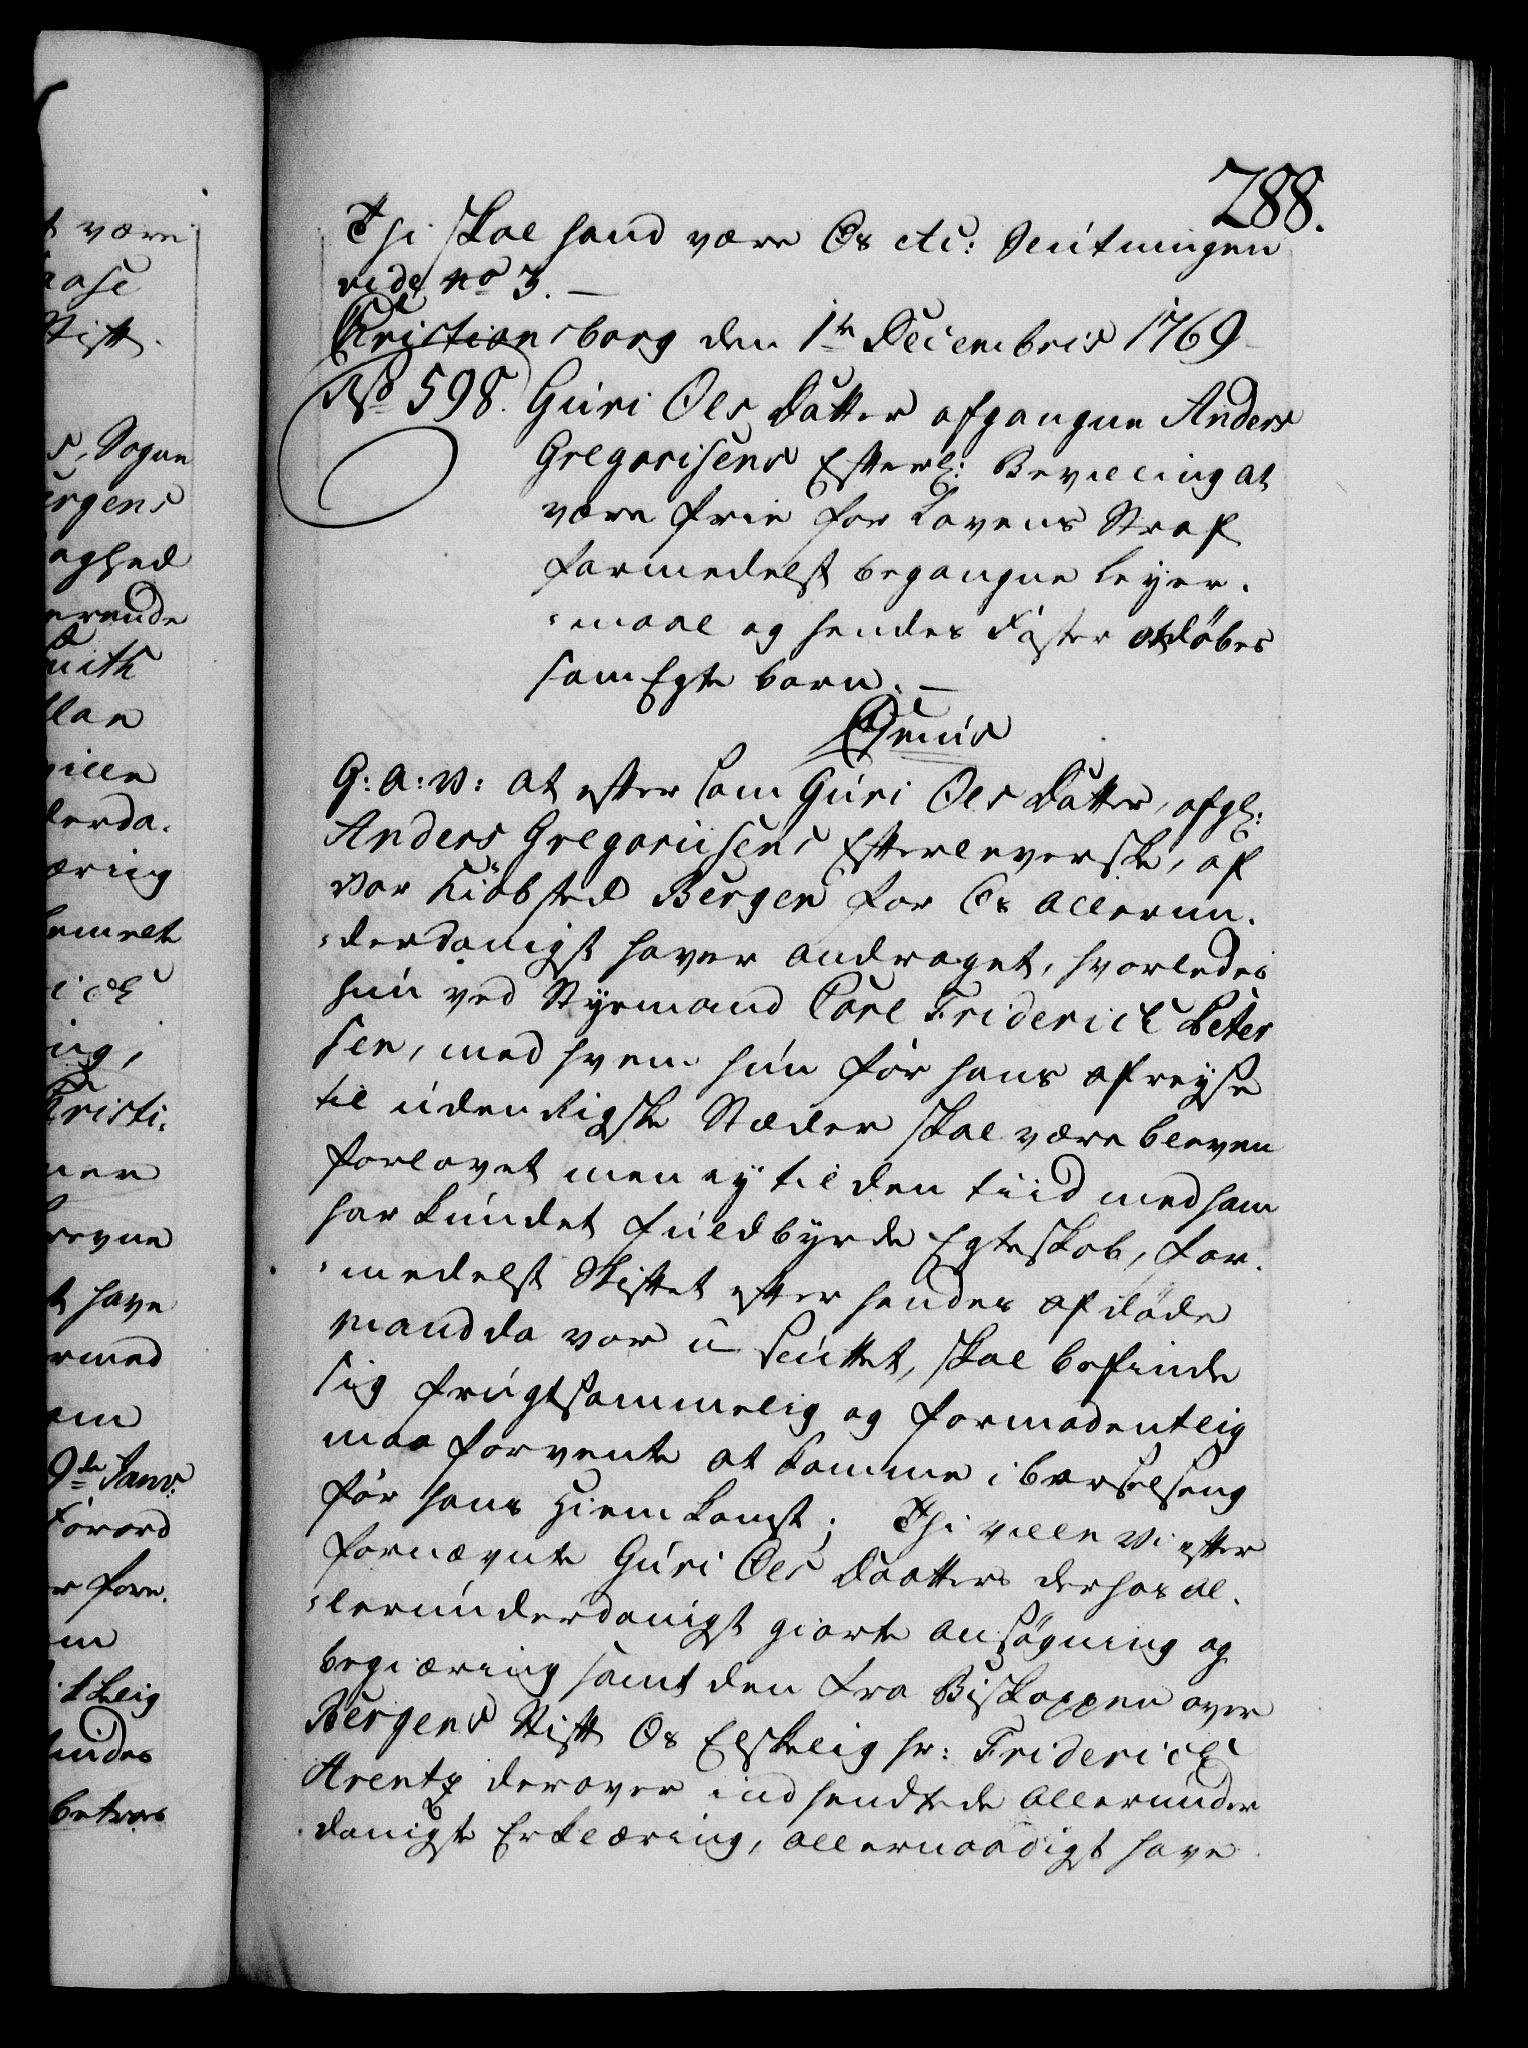 288.
Thi skal hand være Os etc: Slutningen
vide no 3. —
Christiansborg den 1te Decembris 1769
No 598. Guri Ols Datter afgangne Anders
Gregorisens Efterl: Bevilling at
være frie for Lovens Straf
formedelst begangne Leyer-
-maal og hendes Foster at döbes
som Egte barn. —
Genus
G: A: V: at eftersom Guri Ols Datter, afgl:
Anders Gregoriisens Efterleverske, af
vor Kiöbsted Bergen for Os allerun-
-derdanigst haver andraget, hvorledes
hun ved Styrmand Carl Friderich Peter
sen, med hvem hun för hans afreyse
til udenrigske Stæder skal være bleven
forlovet men ey til den tiid med ham
har kundet fuldbyrde Egteskab, for-
-medelst Skiftet efter hendes afdöde
Mand da var u-sluttet, skal befinde
sig frugtsommelig og formodentlig
maa forvente at komme i barselseng
för hans Hiemkomst; Thi ville Vi efter
fornævnte Guri Ols Daatters derhos al-
-lerunderdanigst giorte ansögning og
begiæring samt den fra Biskoppen over
Bergens Stift Os Elskelig hr: Friderich
Arentz derover indsendtede allerunder
danigste Erklæring, allernaadigst have
t være
Stift.
s, Sogne
ergens
aghed
ville
æring
ing,
Kristi-
t have
9de Janv: